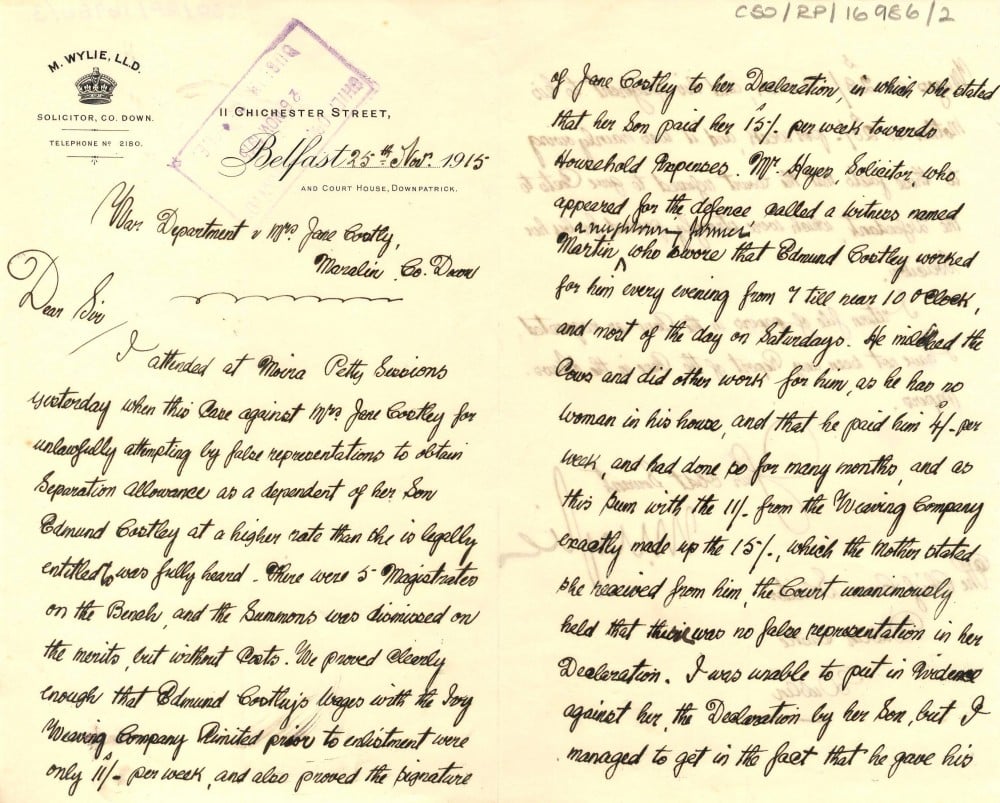 CSO/RP/16986/2
M. WYLIE, LL.D.
SOLICITOR, CO. DOWN.
TELEPHONE Nº 2180.
11 CHICHESTER STREET,
Belfast 25th Novr. 1915
AND COURT HOUSE, DOWNPATRICK.
War Department v Mrs Jane Costley,
Maralin Co. Down
Dear Sir
I attended at Moira Petty Sessions
yesterday when this Case against Mrs Jane Costley for
unlawfully attempting by false representations to obtain
Separation Allowance as a dependent of her Son
Edmund Costley at a higher rate than she is legally
entitled to was fully heard. There were 5 Magistrates
on the Bench, and the Summons was dismissed on
the merits, but without Costs. We proved clearly
enough that Edmund Costley's Wages with the
Weaving Company Limited prior to enlistment were
only 11/- per week, and also proved the signature
of Jane Costley to her Declaration, in which she stated
that her Son paid her 15/- per week towards
Household Expenses. Mr. Hayes, Solicitor, who
appeared for the defence called a witness named
a neighbouring farmer
Martin, who swore that Edmund Costley worked
for him every evening from 7 till near 10 O'Clock,
and most of the day on Saturdays. He milked the
Cows and did other work for him, as he has no
woman in his house, and that he paid him 4/- per
week, and had done so for many months, and as
this Sum with the 11/- from the Weaving Company
exactly made up the 15/-, which the Mother stated
she received from him, the Court unanimously
held that there was no false representation in her
Declaration. I was unable to put in Evidence
against her, the Declaration by her Son, but I
managed to get in the fact that he gave his